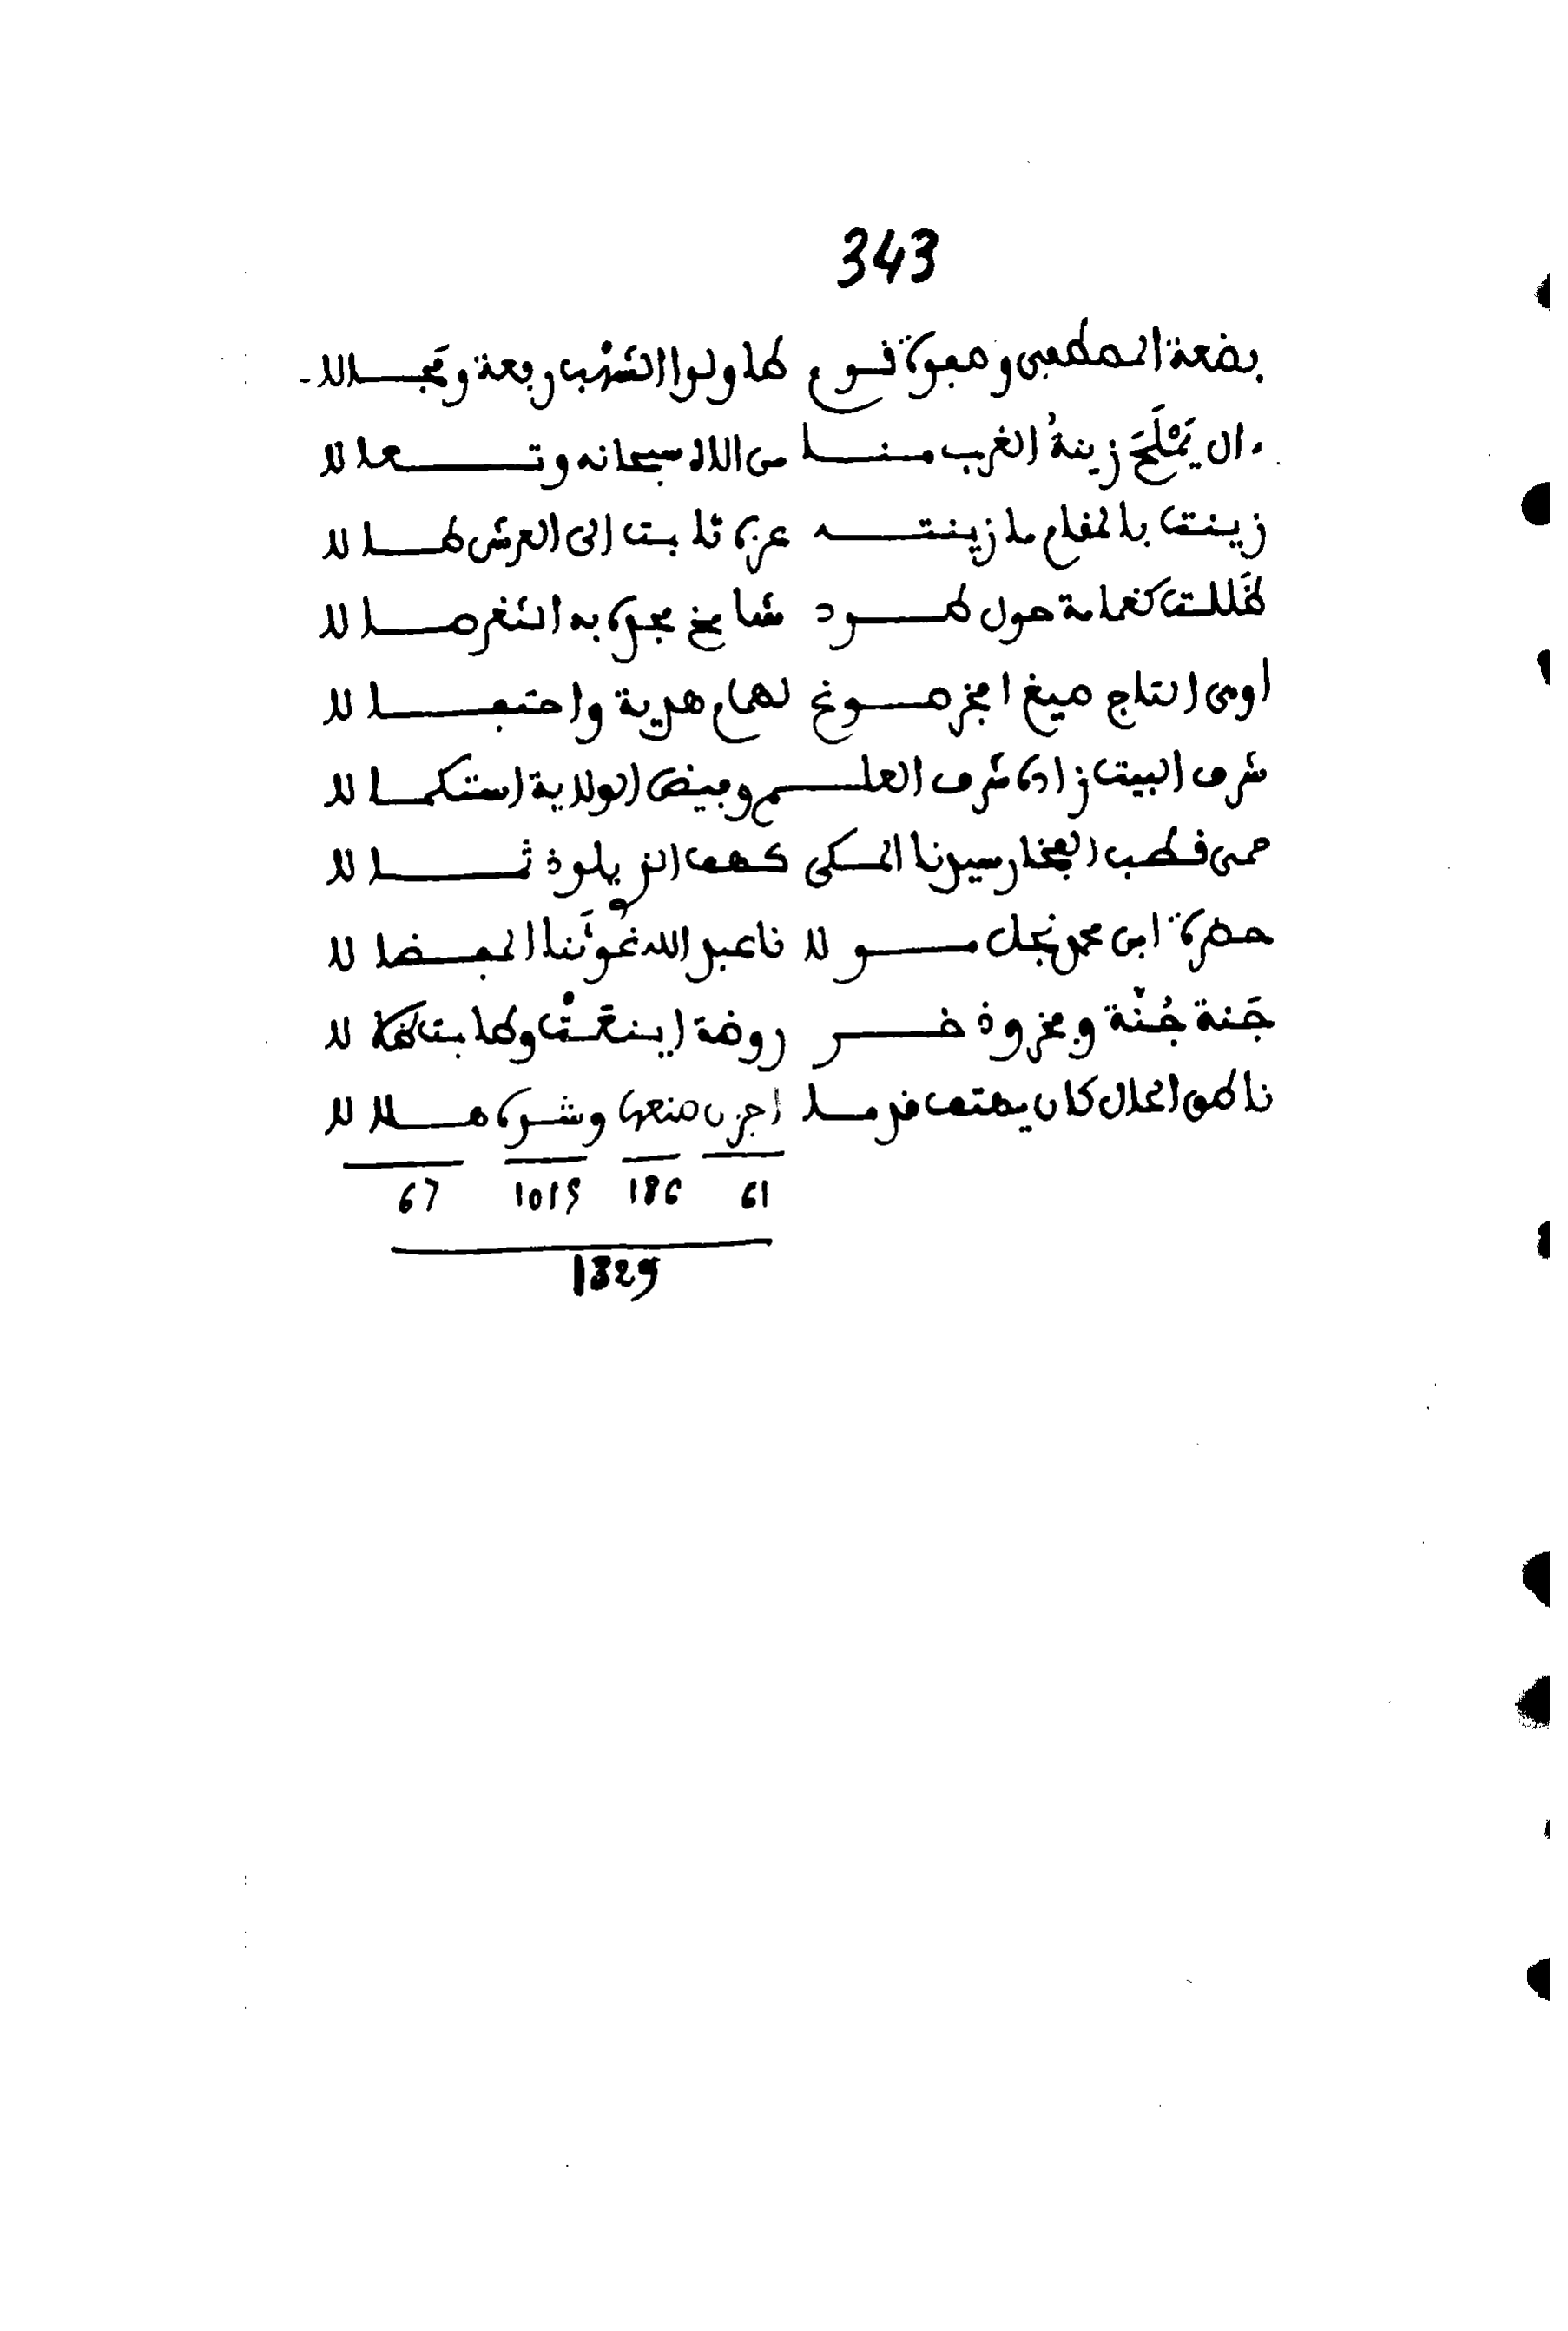 343
بضعة المصطفى وصفوة قوم طاولوا الشهب رفعة ومجالا
ءال يَمْلَحَ زينةُ الغرب منا من الاه سبحانه وتعالا
زينت بالمقام ما زينته عزة ثابت الى العرش طالا
ظَللت كغمامة حول طود شامخ مجده به الثغر صالا
اوفى التاج صيغ امجز مصوغ لهمام هدية واحتفالا
شرف البيت زاده شرف العلم وفيض الولاية استكمالا
حمى قطب الفخار سيدنا المكى كهف الذ يلوذ ثمالا
حضرة ابن محمد نجل مولا نا عبد الله غَوْثَنا المفضالا
جَنة جُنَّة وفخر وذخر روضة اينعَتْ وطابت ظلالا
ناطق الحال كان يهتف فيها اجزت صنعها وشده هلالا
61 186 1015 67
1329